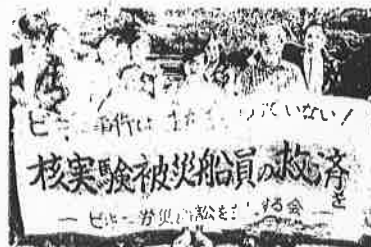 ビキニ事件は まだ 終っていない!
核実験被災船員の救済を
― ビキニ労災訴訟を する会 ―